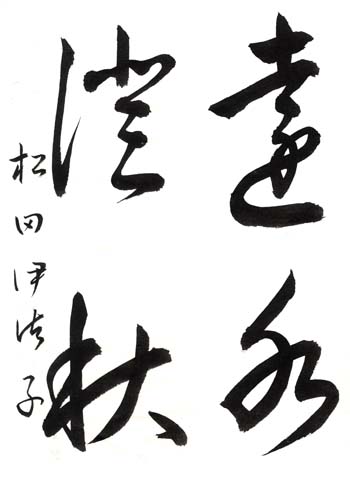 遠水
澄秋
松田伊津子